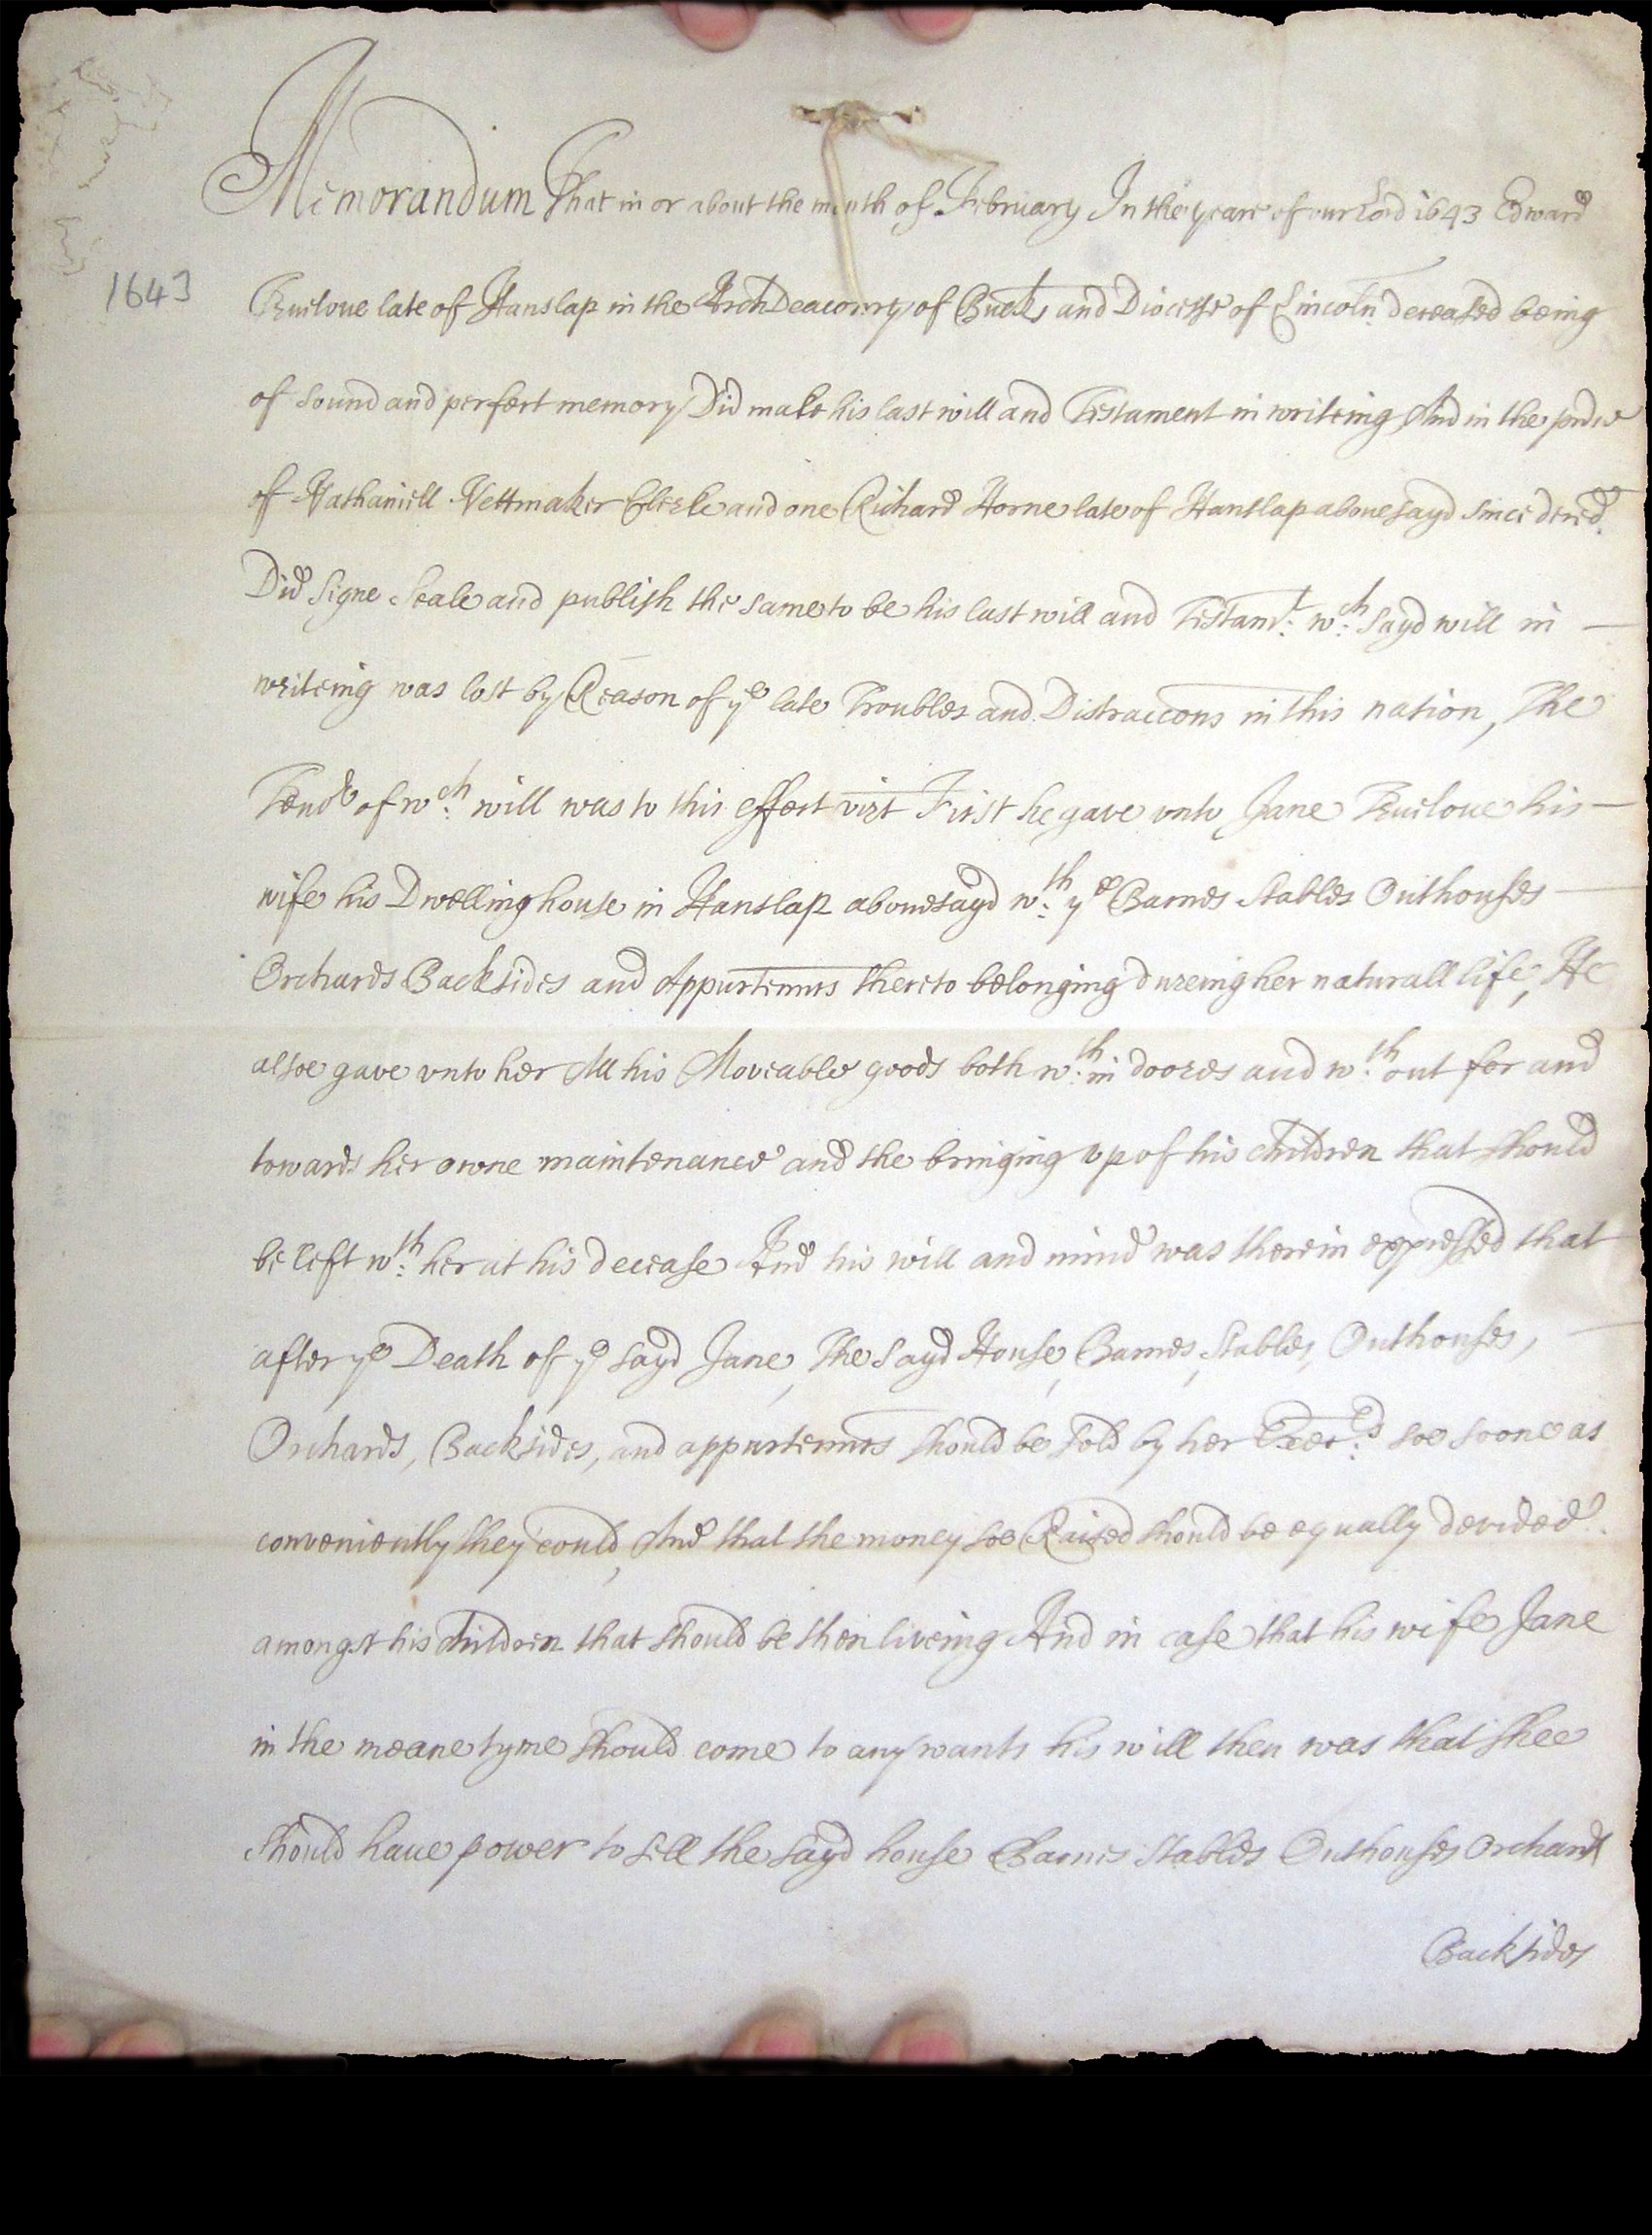 Memorandum That in or about the month of February In the yeare of our Lord 1643 Edward
1643
Truelove late of Hanslap in the ArchDeaconry of Bucks and Diocesse of Lincoln deceased being
of sound and perfect memory Did make his last will and Testament in writeing And in the pnce
of Nathaniell Nettmaker Clerke and one Richard Horne late of Hanslap abovesayd since deced
Did signe seale and publish the same to be his last will and Testamt: wch: sayd will in
writeing was lost by Reason of ye late Troubles and Distraccons in this nation, The
Tend of wch: will was to this effect vizt First he gave vnto Jane Truelove his
wife his Dwelling house in Hanslap abovesayd wth: ye Barnes Stables Outhouses
Orchards Backsides and Appurtennces thereto belonging dureing her naturall life, He
alsoe gave vnto her All his Moveable goods both wth:in doores and wth:out for and
towards her owne maintenance and the bringing vp of his children that should
be left wth: her at his decease And his will and mind was therein expressed that
after ye Death of ye sayd Jane, The sayd House, Barnes, Stables, Outhouses,
Orchards, Backsides, and appurtennces should be sold by her Execrs: soe soone as
conveniently they could, And that the money soe Raised should be equally devided
amongst his children that should be then liveing And in case that his wife Jane
in the meane tyme should come to any wants his will then was that shee
should haue power to sell the sayd house Barnes Stables Outhouses Orchards
Backsides